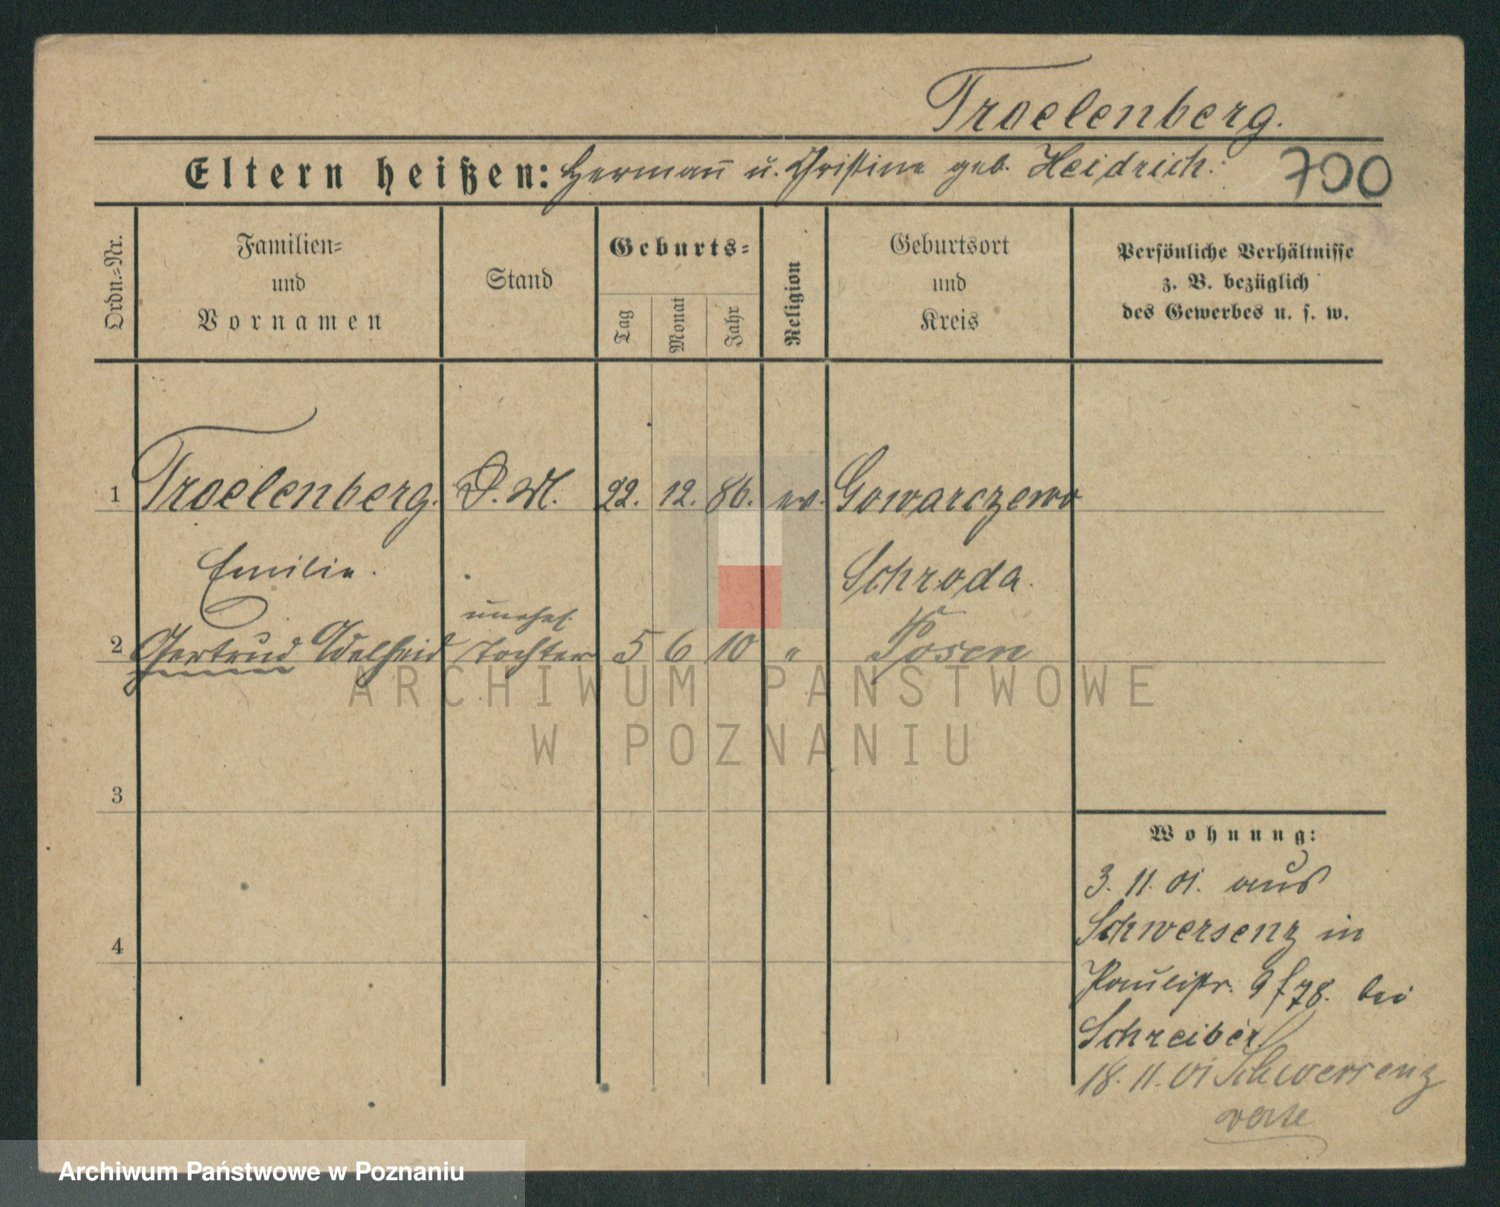 Troelenberg.
Eltern heißen: Hermann u. Christine geb. Heidrich. 700
Ordn.-Nr.
Familien-
und
Vornamen
Stand
Geburts-
Tag
Monat
Jahr
Religion
Geburtsort
und
Kreis
Persönliche Verhältnisse
z. B. bezüglich
des Gewerbes u. s. w.
1 Troelenberg. D. M. 22. 12. 86. ev. Gowarczewo
Emilie. Schroda.
unehel.
2 Gertrud Adelheid Tochter 5 6 10 " Posen
3
4
Wohnung:
3. 11. 01. aus
Schwersenz in
Paulistr. 9 f 78. bei
Schreiber
18. 11. 01 Schwersenz
verte
ARCHIWUM PAŃSTWOWE
W POZNANIU
Archiwum Państwowe w Poznaniu